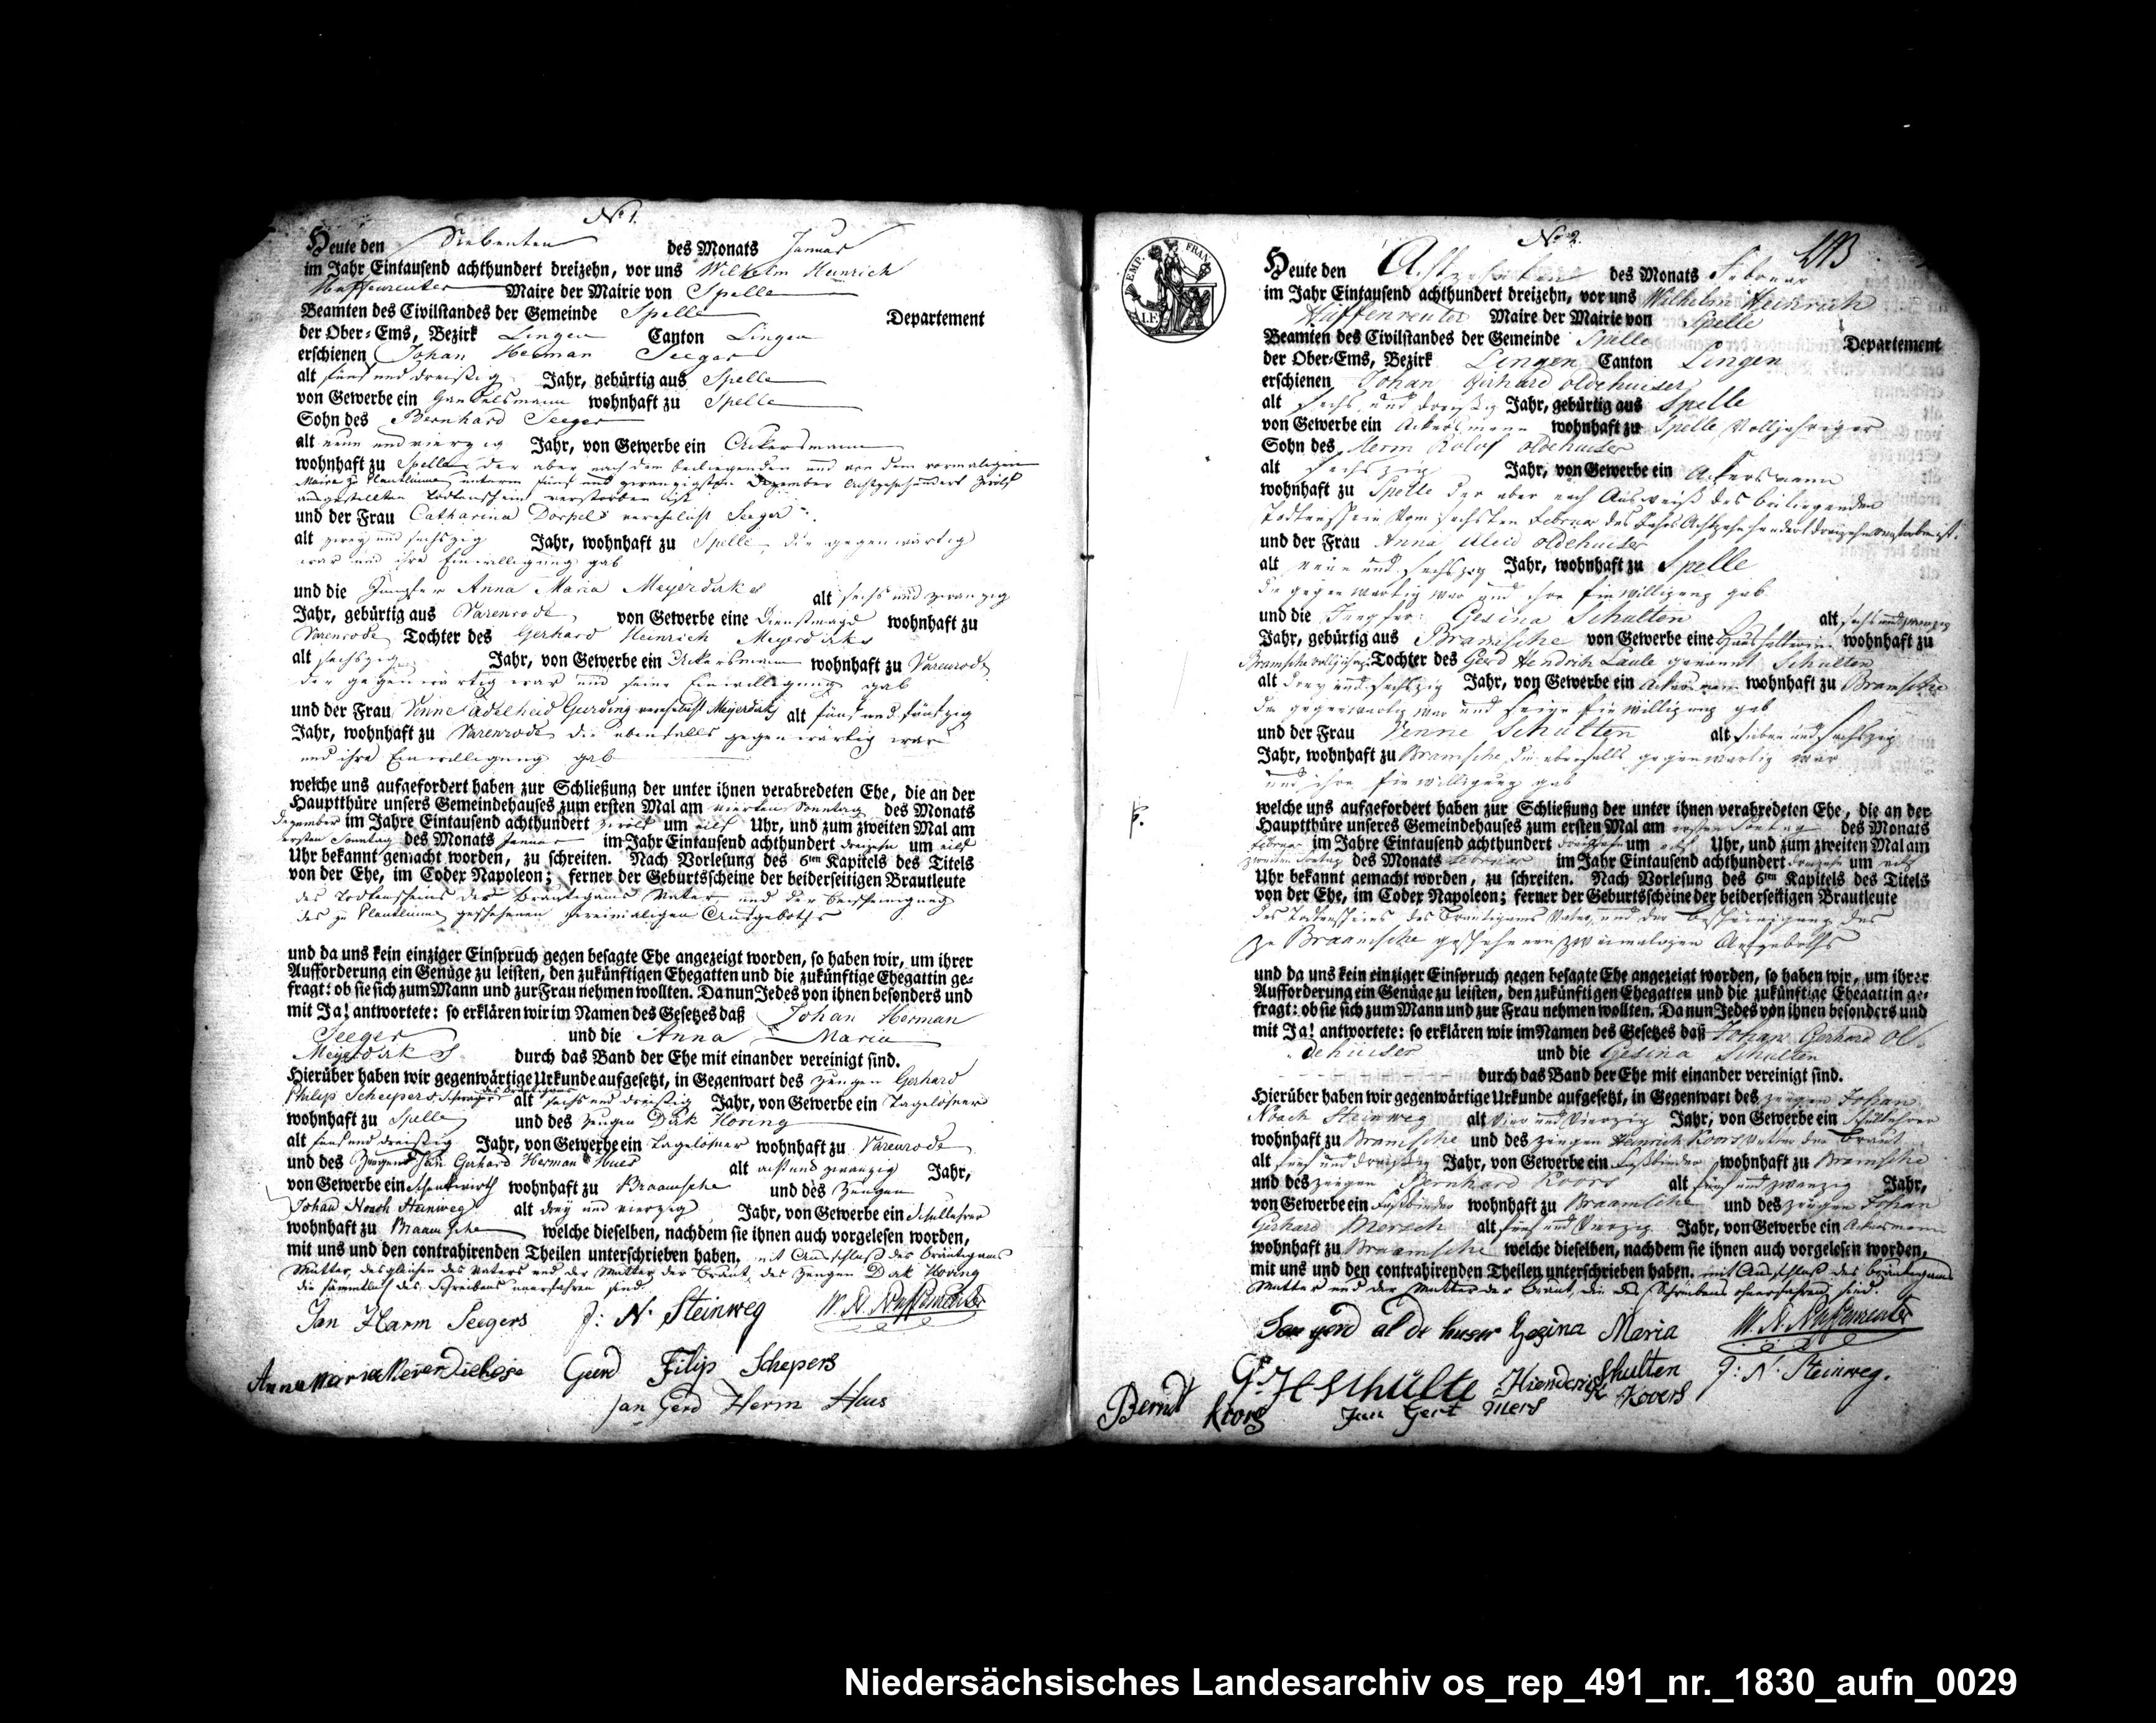 No 1.
Heute den Siebenten des Monats Januar
im Jahr Eintausend achthundert dreizehn, vor uns Wilhelm Heinrich
Maire der Mairie von Spelle
Beamten des Civilstandes der Gemeinde Spelle Departement
der Ober-Ems, Bezirk Lingen Canton Lingen
erschienen Johan Herman Seeger
alt fünf und dreißig Jahr, gebürtig aus Spelle
von Gewerbe ein wohnhaft zu Spelle
Sohn des Bernhard Seeger
alt neun und vierzig Jahr, von Gewerbe ein Ackersmann
wohnhaft zu Spelle der aber nach dem beiliegenden und von dem vormaligen
Maire zu Plantlünne unterm fünf und zwanzigsten Dezember Achtzehnhundert zwölf
ausgestellten Todtenschein verstorben ist
und der Frau Catharina verehelicht Seeger
alt zwey und sechszig Jahr, wohnhaft zu Spelle, die gegenwärtig
war und ihre Einwilligung gab
und die Jungfer Anna Maria Meyerdirks alt sechs und zwanzig
Jahr, gebürtig aus Varenrode von Gewerbe eine Dienstmagd wohnhaft zu
Varenrode Tochter des Gerhard Heinrich Meyerdirks
alt sechszig Jahr, von Gewerbe ein Ackersmann wohnhaft zu Varenrode
der gegenwärtig war und seine Einwilligung gab
und der Frau Venne Adelheid Gerding verehelicht Meyerdirks alt fünf und fünfzig
Jahr, wohnhaft zu Varenrode die ebenfalls gegenwärtig war
und ihre Einwilligung gab
welche uns aufgefordert haben zur Schließung der unter ihnen verabredeten Ehe, die an der
Hauptthüre unsers Gemeindehauses zum ersten Mal am vierten Sonntag des Monats
Dezember im Jahre Eintausend achthundert zwölf um eilf Uhr, und zum zweiten Mal am
ersten Sonntag des Monats Januar im Jahr Eintausend achthundert dreizehn um eilf
Uhr bekannt gemacht worden, zu schreiten. Nach Vorlesung des 6ten Kapitels des Titels
von der Ehe, im Codex Napoleon; ferner der Geburtsscheine der beiderseitigen Brautleute
des Todtenscheins des Bräutigams Vater und der Bescheinigung
des zu Plantlünne geschehenen zweimaligen Aufgeboths
und da uns kein einziger Einspruch gegen besagte Ehe angezeigt worden, so haben wir, um ihrer
Aufforderung ein Genüge zu leisten, den zukünftigen Ehegatten und die zukünftige Ehegattin ge-
fragt: ob sie sich zum Mann und zur Frau nehmen wollten. Da nun Jedes von ihnen besonders und
mit Ja! antwortete: so erklären wir im Namen des Gesetzes daß Johan Herman
Seeger und die Anna Maria
Meyerdirks durch das Band der Ehe mit einander vereinigt sind.
Hierüber haben wir gegenwärtige Urkunde aufgesetzt, in Gegenwart des Zeugen Gerhard
Philip Scheipers Schwager des Bräutigams alt sechs und dreißig Jahr, von Gewerbe ein Tagelöhner
wohnhaft zu Spelle und des Zeugen Dirk Hoving
alt fünf und dreißig Jahr, von Gewerbe ein Tagelöhner wohnhaft zu Varenrode
und des Zeugens Jan Gerhard Herman Hues alt acht und zwanzig Jahr,
von Gewerbe ein Schenkwirth wohnhaft zu Braamsche und des Zeugen
Johan Noach Steinweg alt drey und vierzig Jahr, von Gewerbe ein Schullehrer
wohnhaft zu Braamsche welche dieselben, nachdem sie ihnen auch vorgelesen worden,
mit uns und den contrahirenden Theilen unterschrieben haben. mit Ausschluß des Bräutigams
Mutter, desgleichen des Vaters und der Mutter der Braut, des Zeugen Dirk Hoving
die sämmtlich des Schreibens unerfahren sind.
Jan Harm Seegers J: N: Steinweg
Gerd Filip Schepers
Jan Gerd Herm Hues
EMP. FRAN.
No 2. 213
Heute den Achtzehnten des Monats Februar
im Jahr Eintausend achthundert dreizehn, vor uns Wilhelm Heinrich
Maire der Mairie von Spelle
Beamten des Civilstandes der Gemeinde Spelle Departement
der Ober-Ems, Bezirk Lingen Canton Lingen
erschienen Johan Gerhard oldehuiser
alt sechs und dreißig Jahr, gebürtig aus Spelle
von Gewerbe ein Ackersmann wohnhaft zu Spelle, Volljähriger
Sohn des Herm Rolof oldehuiser
alt sechszig Jahr, von Gewerbe ein Ackersmann
wohnhaft zu Spelle der aber nach Ausweiß des beiliegenden
Todtenschein vom sechsten Februar des Jahrs Achtzehnhundert dreizehn verstorben ist.
und der Frau Anna Aleid oldehuiser
alt neun und sechszig Jahr, wohnhaft zu Spelle
die gegenwärtig war und ihre Einwilligung gab
und die Jungfer Gesina Schulten alt sechs und zwanzig
Jahr, gebürtig aus Bramsche von Gewerbe eine Haushälterin wohnhaft zu
Bramsche volljährige Tochter des Gerd Hendrich Laule genannt Schulten
alt drey und sechszig Jahr, von Gewerbe ein Ackersmann wohnhaft zu Bramsche
der gegenwärtig war und seine Einwilligung gab
und der Frau Venne Schulten alt sieben und sechszig
Jahr, wohnhaft zu Bramsche, die ebenfalls gegenwärtig war
und ihre Einwilligung gab
welche uns aufgefordert haben zur Schließung der unter ihnen verabredeten Ehe, die an der
Hauptthüre unseres Gemeindehauses zum ersten Mal am ersten Sontag des Monats
Februar im Jahre Eintausend achthundert dreizehn um Uhr, und zum zweiten Mal am
zweiten Sontag des Monats Februar im Jahr Eintausend achthundert dreizehn um
Uhr bekannt gemacht worden, zu schreiten. Nach Vorlesung des 6ten Kapitels des Titels
von der Ehe, im Codex Napoleon; ferner der Geburtsscheine der beiderseitigen Brautleute
des Todtenscheins des Bräutigams Vater, und der Bescheinigung des
zu Braamsche geschehenen zweimaligen Aufgeboths
und da uns kein einziger Einspruch gegen besagte Ehe angezeigt worden, so haben wir, um ihrer
Aufforderung ein Genüge zu leisten, den zukünftigen Ehegatten und die zukünftige Ehegattin ge-
fragt: ob sie sich zum Mann und zur Frau nehmen wollten. Da nun Jedes von ihnen besonders und
mit Ja! antwortete: so erklären wir im Namen des Gesetzes daß Johan Gerhard Ol-
dehuiser und die Gesina Schulten
durch das Band der Ehe mit einander vereinigt sind.
Hierüber haben wir gegenwärtige Urkunde aufgesetzt, in Gegenwart des Zeugen Johan
Noach Steinweg alt Vier und Vierzig Jahr, von Gewerbe ein Schullehrer
wohnhaft zu Bramsche und des Zeugen Heinrich Koors Vetter der Braut
alt fünf und dreißig Jahr, von Gewerbe ein Faßbinder wohnhaft zu Bramsche
und des Zeugen Bernhard Koors alt fünf und zwanzig Jahr,
von Gewerbe ein Faßbinder wohnhaft zu Braamsche und des Zeugen Johan
Gerhard Mersch alt fünf und Vierzig Jahr, von Gewerbe ein Ackersmann
wohnhaft zu Braamsche welche dieselben, nachdem sie ihnen auch vorgelesen worden,
mit uns und den contrahirenden Theilen unterschrieben haben. mit Ausschluß des Bräutigams
Mutter und der Mutter der Braut, die des Schreibens unerfahren sind.
Jan gerd al de huser Gezina Maria
G: H Schulte Hienderick Schulten J: N: Steinweg.
Bernd Koors Jan Gert Mers Koors
Niedersächsisches Landesarchiv os_rep_491_nr._1830_aufn_0029